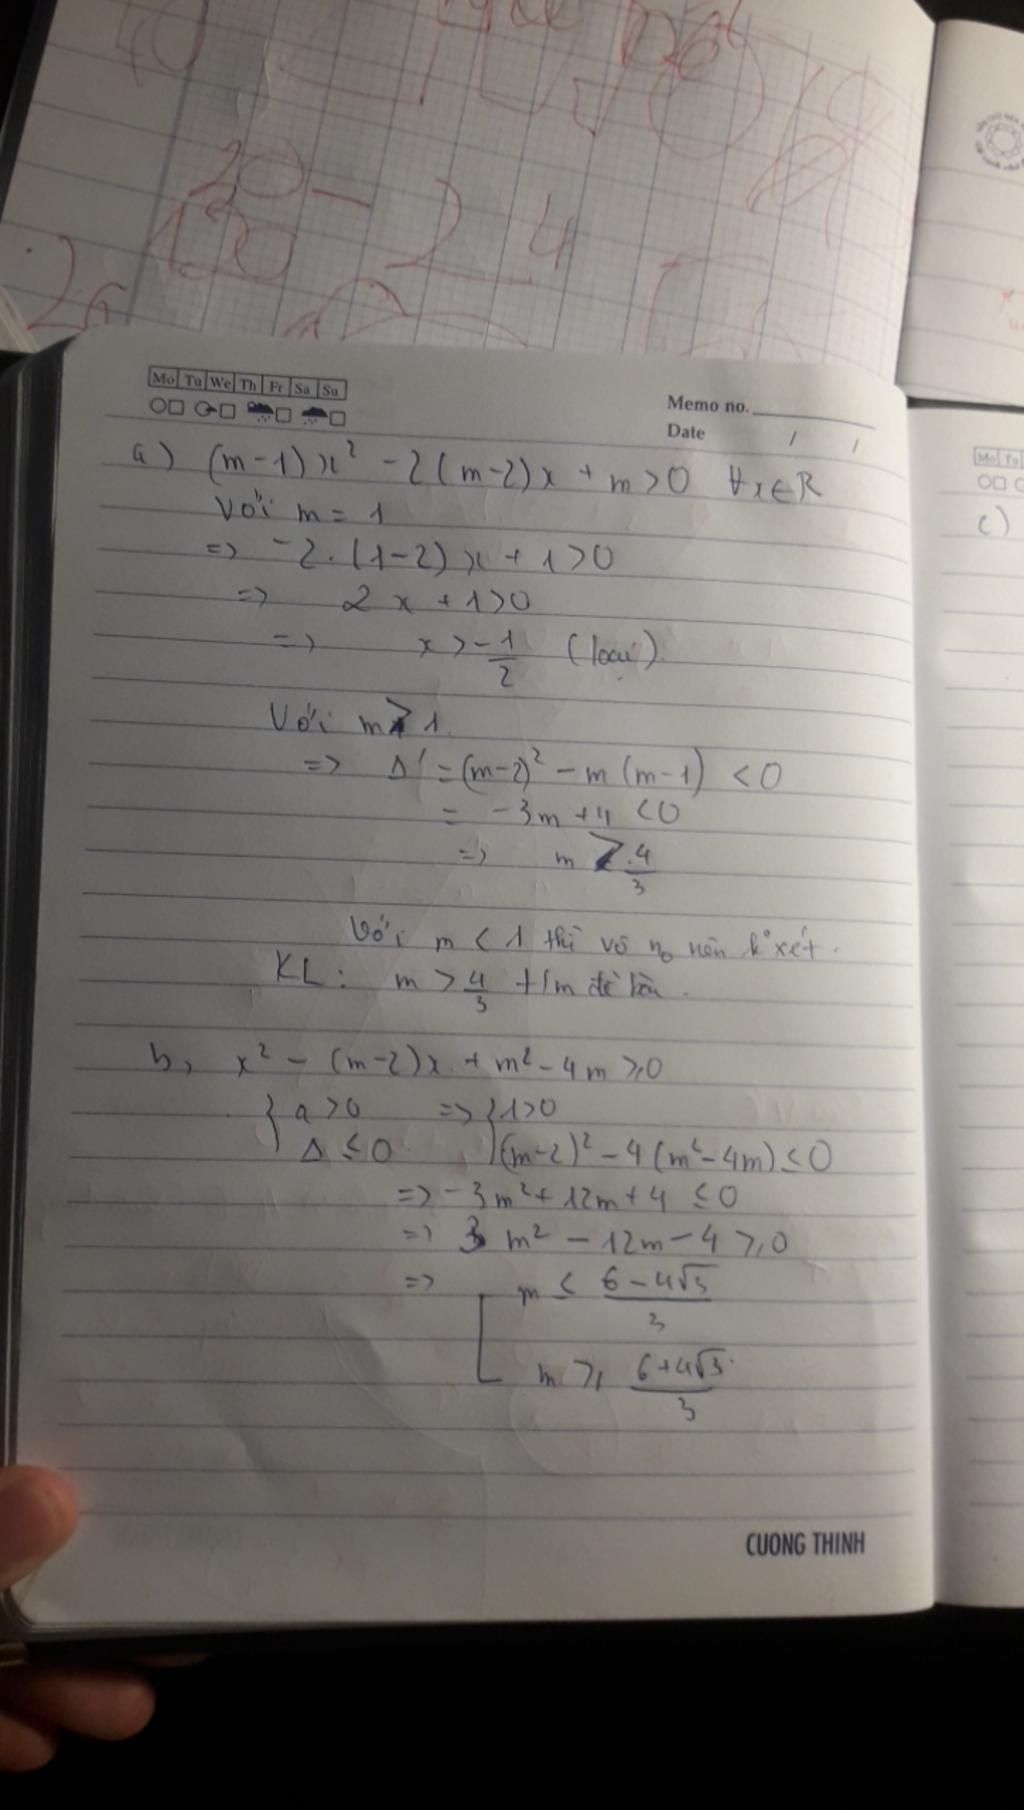 40
20
130
2 4
Mo Tu We Th Fr Sa Su
Memo no.
Date / /
a) (m-1)x² - 2(m-2)x + m > 0 ∀x∈R
Với m = 1
=> -2.(1-2)x + 1 > 0
=> 2x + 1 > 0
=> x > -1/2 (loại)
Với m > 1.
=> Δ' = (m-2)² - m(m-1) < 0
= -3m + 4 < 0
=> m > 4/3
Với m < 1 thì vô no nên k° xét.
KL: m > 4/3 t/m đề bài.
b, x² - (m-2)x + m² - 4m ≥ 0
{ a > 0 => { 1 > 0
Δ ≤ 0 (m-2)² - 4(m² - 4m) ≤ 0
=> -3m² + 12m + 4 ≤ 0
=> 3m² - 12m - 4 ≥ 0
=> [ m ≤ (6 - 4√3)/3
m ≥ (6 + 4√3)/3
CUONG THINH
Mo Tu
c)